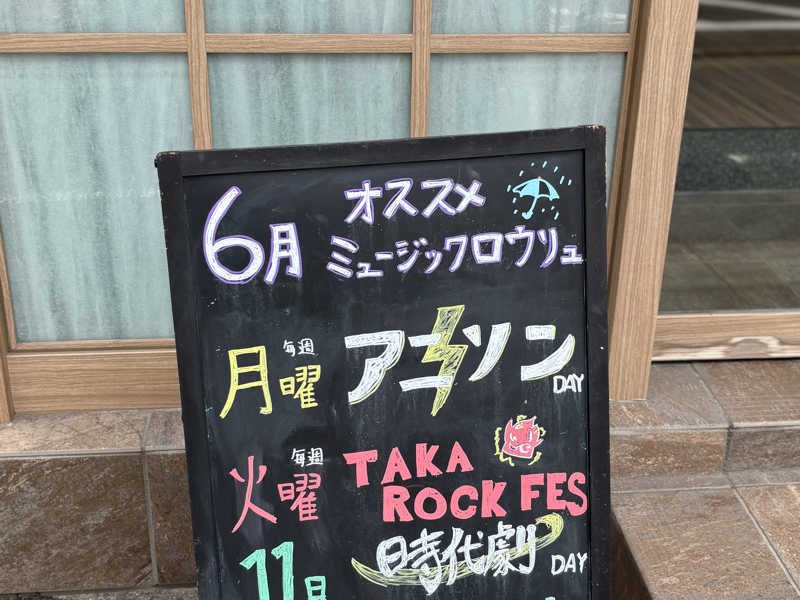 6月 オススメ
ミュージックロウリュ
毎週
月曜 アニソン DAY
毎週
火曜 TAKA
ROCK FES
11日 時代劇 DAY